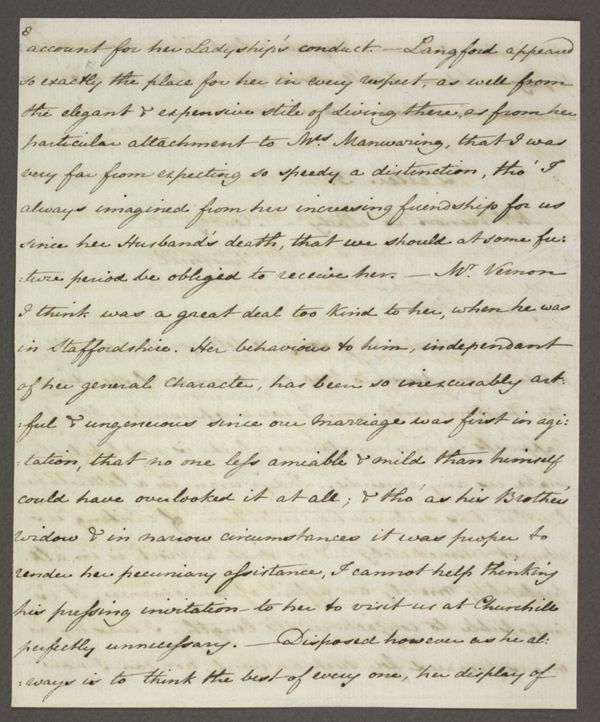 8
account for her Ladyship's conduct. — Langford appeared
so exactly the place for her in every respect, as well from
the elegant & expensive stile of Living there, as from her
particular attachment to Mrs Manwaring, that I was
very far from expecting so speedy a distinction, tho' I
always imagined from her increasing friendship for us
since her Husband's death, that we should at some fu:
:ture period be obliged to receive her. — Mr Vernon
I think was a great deal too kind to her, when he was
in Staffordshire. Her behaviour to him, independant
of her general Character, has been so inexcusably art:
:ful & ungenerous since our Marriage was first in agi:
:tation, that no one less amiable & mild than himself
could have overlooked it at all; & tho' as his Brother's
widow & in narrow circumstances it was proper to
render her pecuniary assistance, I cannot help thinking
his pressing invitation to her to visit us at Churchill
perfectly unnecessary. — Disposed however as he al:
:ways is to think the best of every one, her display of